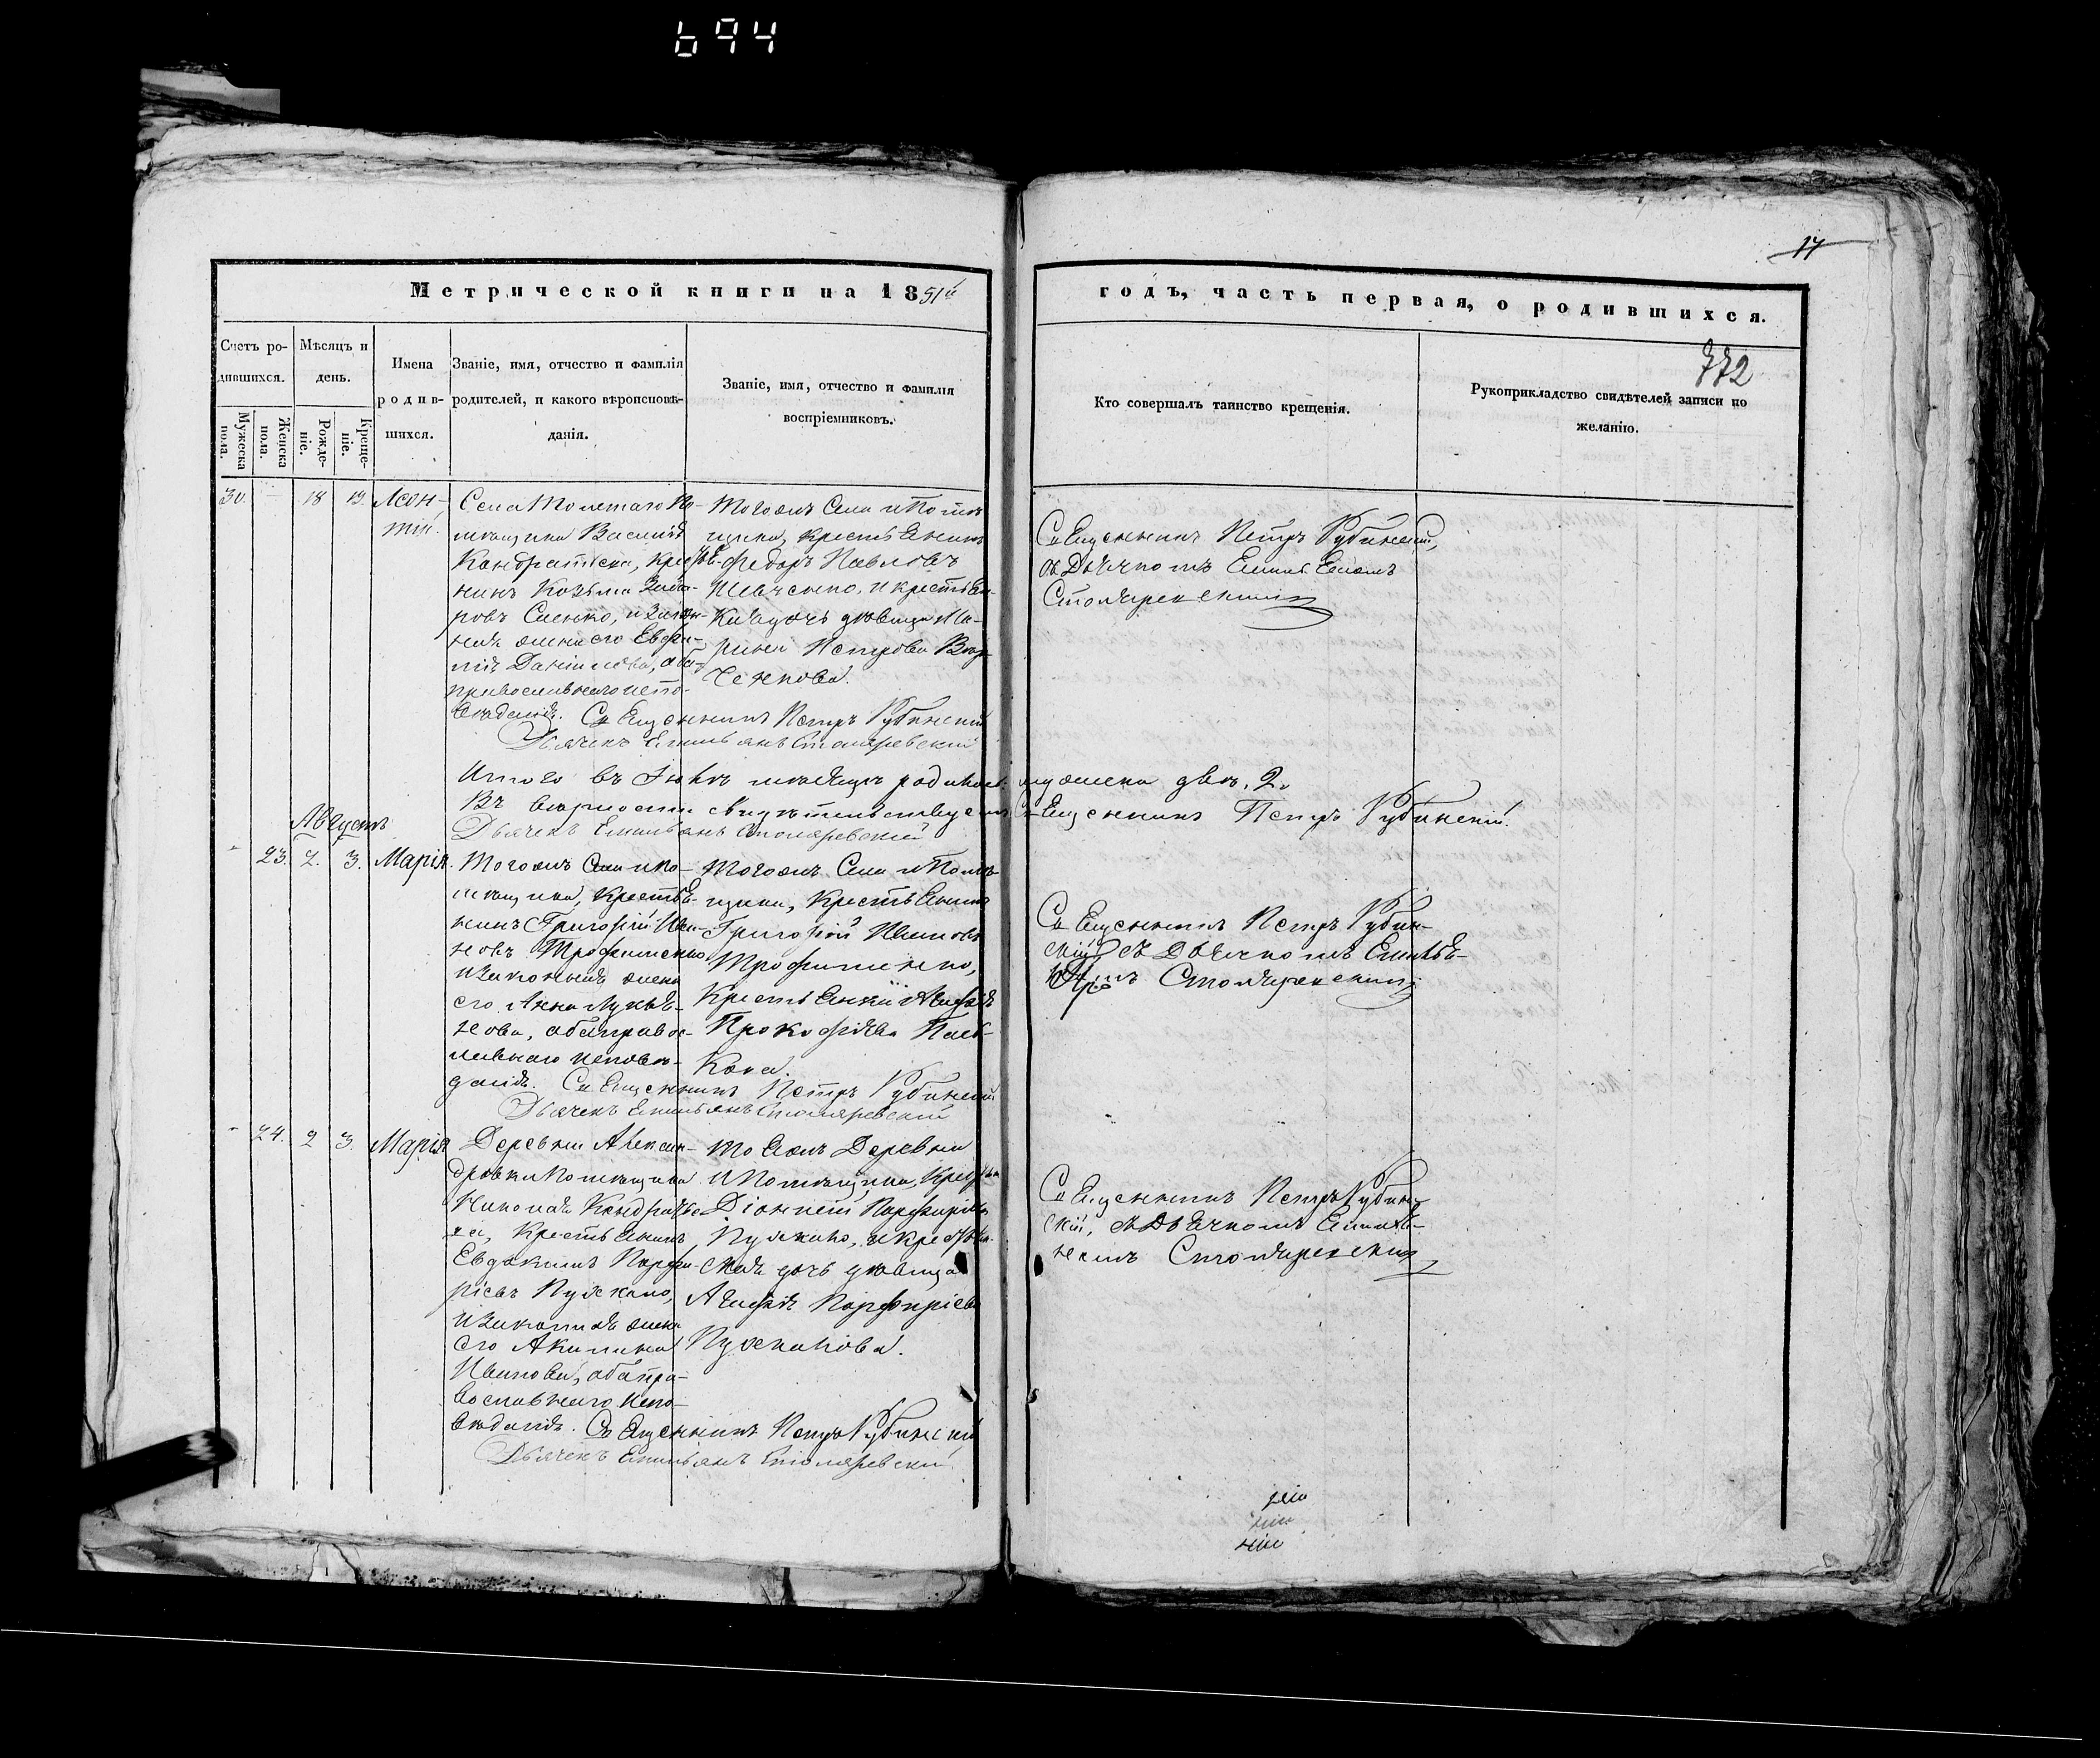 694
17
Метрической книги на 1851й
годъ, часть первая, о родившихся.
772
Счетъ ро-
дившихся.
Мужеска пола.
Женска пола.
Мѣсяцъ и
день.
Рожде-
ніе.
Креще-
ніе.
Имена
родив-
шихся.
Званіе, имя, отчество и фамилія
родителей, и какого вѣроисповѣ-
данія.
Званіе, имя, отчество и фамилія
воспріемниковъ.
Кто совершалъ таинство крещенія.
Рукоприкладство свидѣтелей записи по
желанію.
30. 18 19. Леон-
тій.
Села По-
мѣщика Василія
Кондратьева, крестья-
нинъ Козьма
и закон-
ная жена его Евфи-
мія Данилова, оба
православнаго испо-
вѣданія. Священникъ Петръ Рубинскій
Дьячекъ Емильянъ Столяревскій
Тогожъ Села и Помѣ-
щика, крестьянинъ
Федоръ Павловъ
Шевченко, и крестьян-
дочь дѣвица Ма-
рина Петрова
Священникъ Петръ Рубинскій,
съ Дьячкомъ Емильяномъ
Столяревскимъ
Итого въ Іюлѣ мѣсяцѣ родилось мужеска два. 2.
Въ вѣрности свидѣтельствуемъ Священникъ Петръ Рубинскій.
Дьячекъ Емильянъ Столяревскій
Августъ
23. 2. 3. Марія.
Тогожъ Села и По-
мѣщика, крестья-
нинъ Григорій Ива-
новъ Трофименко,
и законная жена
его Анна Лукья-
нова, оба правос-
лавнаго исповѣ-
данія. Священникъ Петръ Рубинскій
Дьячекъ Емильянъ Столяревскій
Тогожъ Села и Помѣ-
щика, крестьянинъ
Григорій Ивановъ
Трофименко,
Крестьянки Агафія
Прокофіева
Священникъ Петръ Рубин-
скій съ Дьячкомъ Емилья-
номъ Столяревскимъ
24. 2 3. Марія
Деревни Алексан-
дровки Помѣщика
Николая Кондратье-
ва, крестьянинъ
Евдокимъ Порфи-
ріевъ Пужкано,
и законная жена
его Акилина
Иванова, оба пра-
вославнаго испо-
вѣданія. Священникъ Петръ Рубинскій
Дьячекъ Емильянъ Столяревскій
Тоеяжъ Деревни
и Помѣщика, крестья-
Діонисій Порфиріевъ
и крестьян-
ская дочь дѣвица
Агафія Порфиріева
Священникъ Петръ Рубин-
скій, съ Дьячкомъ Емилья-
номъ Столяревскимъ